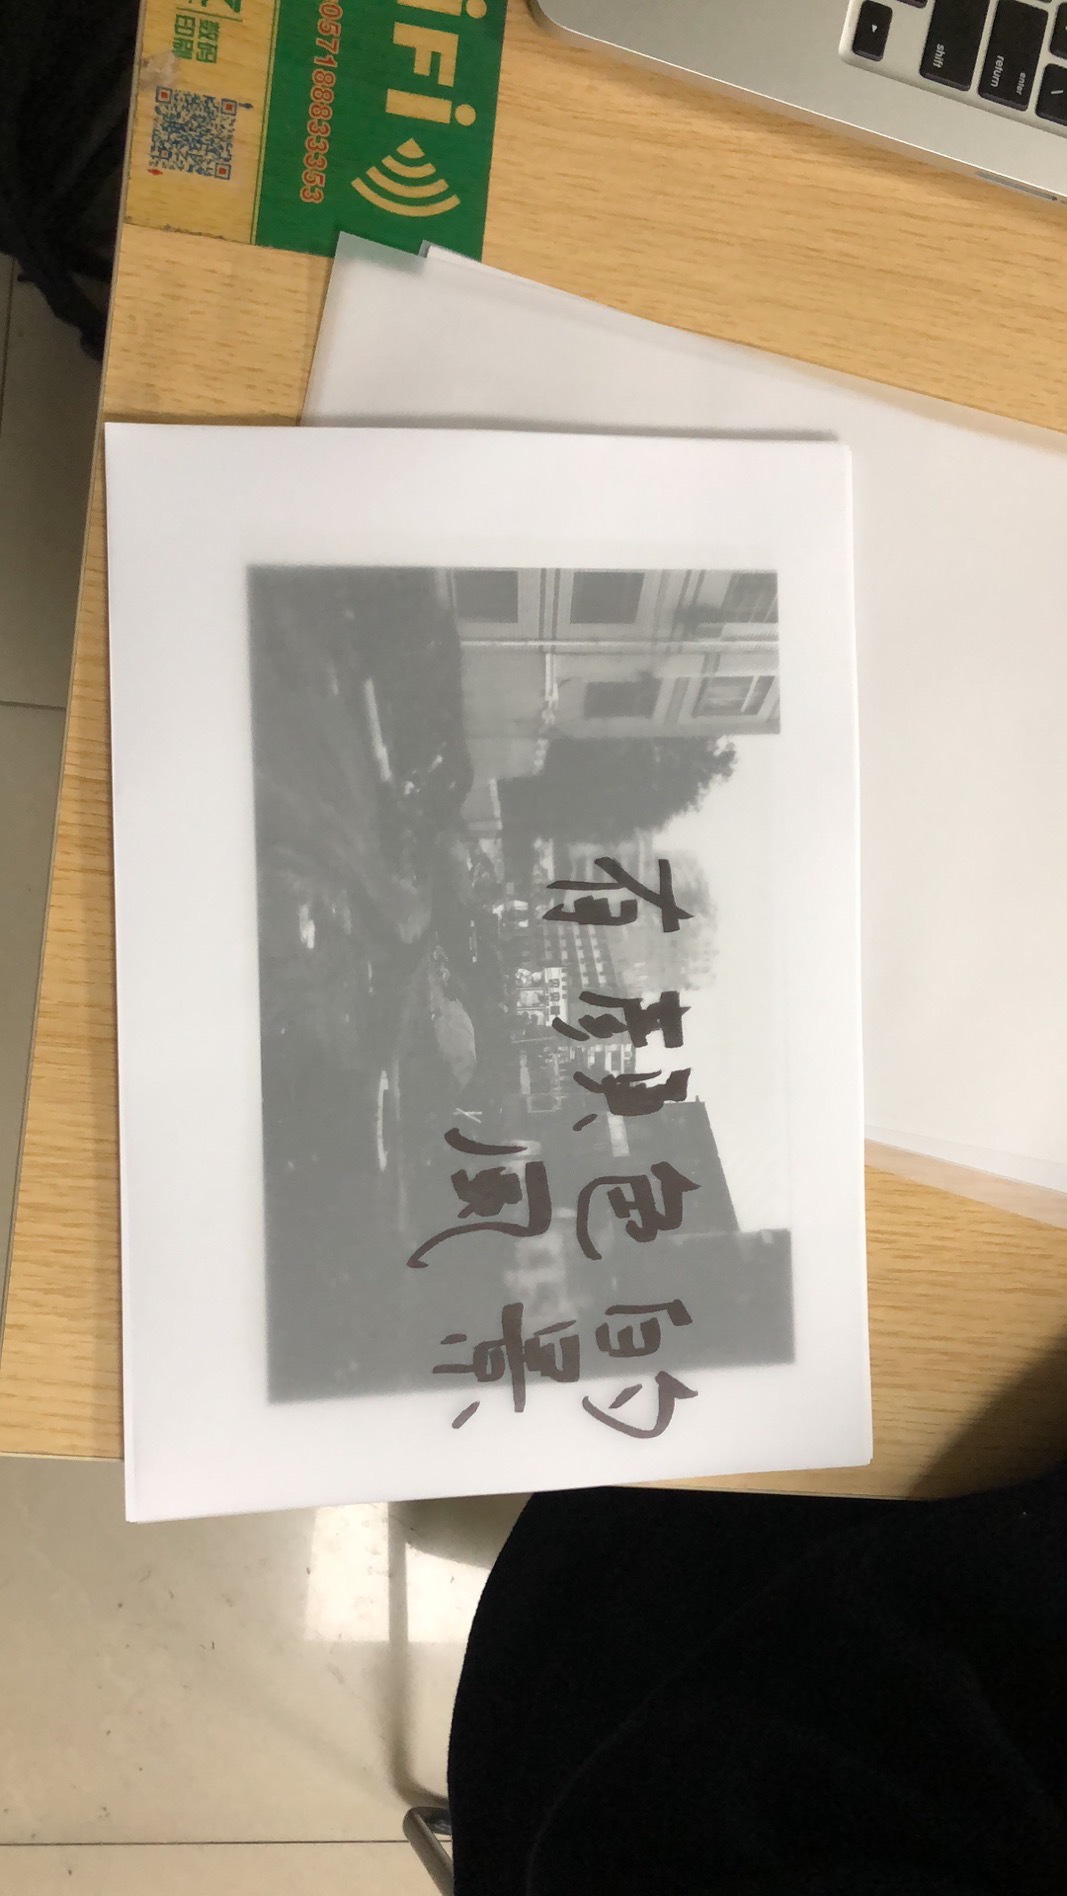 enter
return
shift
有顏色的
風景
iFi
057188833353
数码
印刷